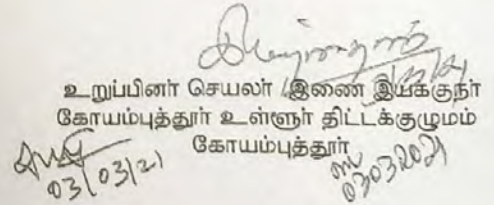 உறுப்பினர் செயலர் / இணை இயக்குநர்
கோயம்புத்தூர் உள்ளூர் திட்டக்குழுமம்
கோயம்புத்தூர்
03/03/21
03032021